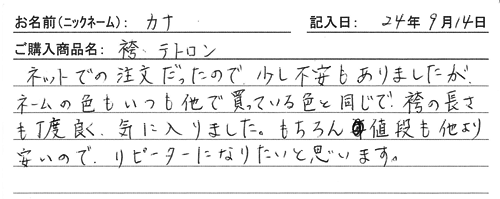 お名前(ニックネーム): カナ 記入日: 24年9月14日
ご購入商品名: 袴 テトロン
ネットでの注文だったので、少し不安もありましたが、
ネームの色もいつも他で買っている色と同じで、袴の長さ
も丁度良く、気に入りました。もちろん値段も他より
安いので、リピーターになりたいと思います。